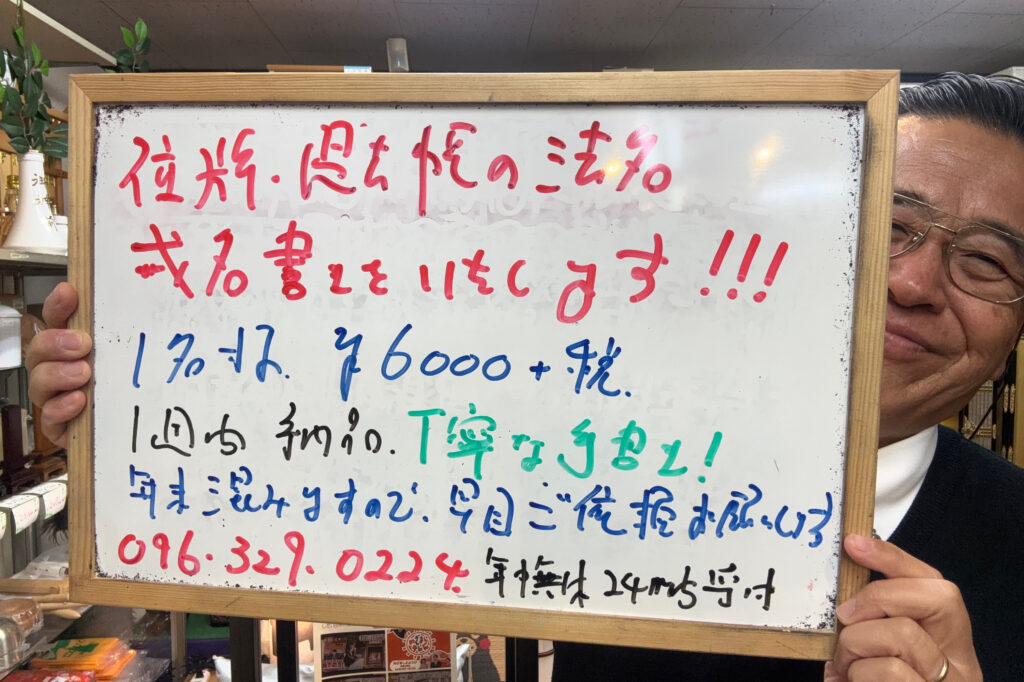 位牌・過去帳の法名
戒名書きをいたします!!!
1名様. ¥6000+税.
1週内 納品. 丁寧な手書き!
年末混みますので、早目ご依頼お願いします
096.329.0224. 年中無休24時受付